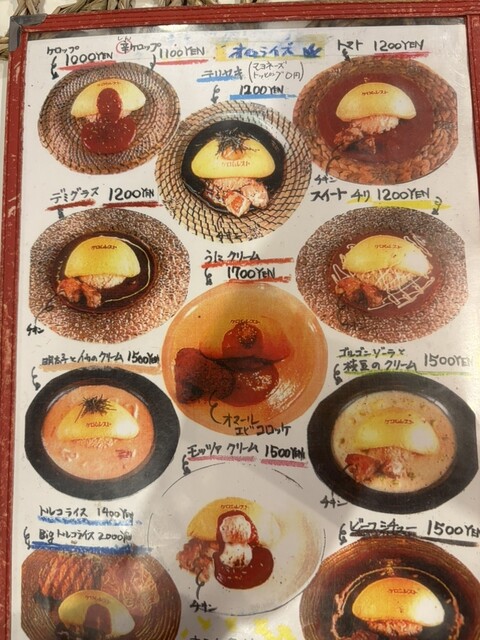 ケロップ
1000YEN
辛ケロップ 1100YEN
オムライス
トマト 1200YEN
テリヤキ (マヨネーズ
トッピング0円)
1200YEN
チキン
デミグラス 1200YEN
チキン
スイートチリ 1200YEN
うにクリーム
1700YEN
チキン
明太子とイカのクリーム 1500YEN
ゴルゴンゾーラと
枝豆のクリーム 1500YEN
オマール
エビコロッケ
モッツァクリーム 1500YEN
チキン
トルコライス 1400YEN
Bigトルコライス 2000YEN
ビーフシチュー 1500YEN
チキン